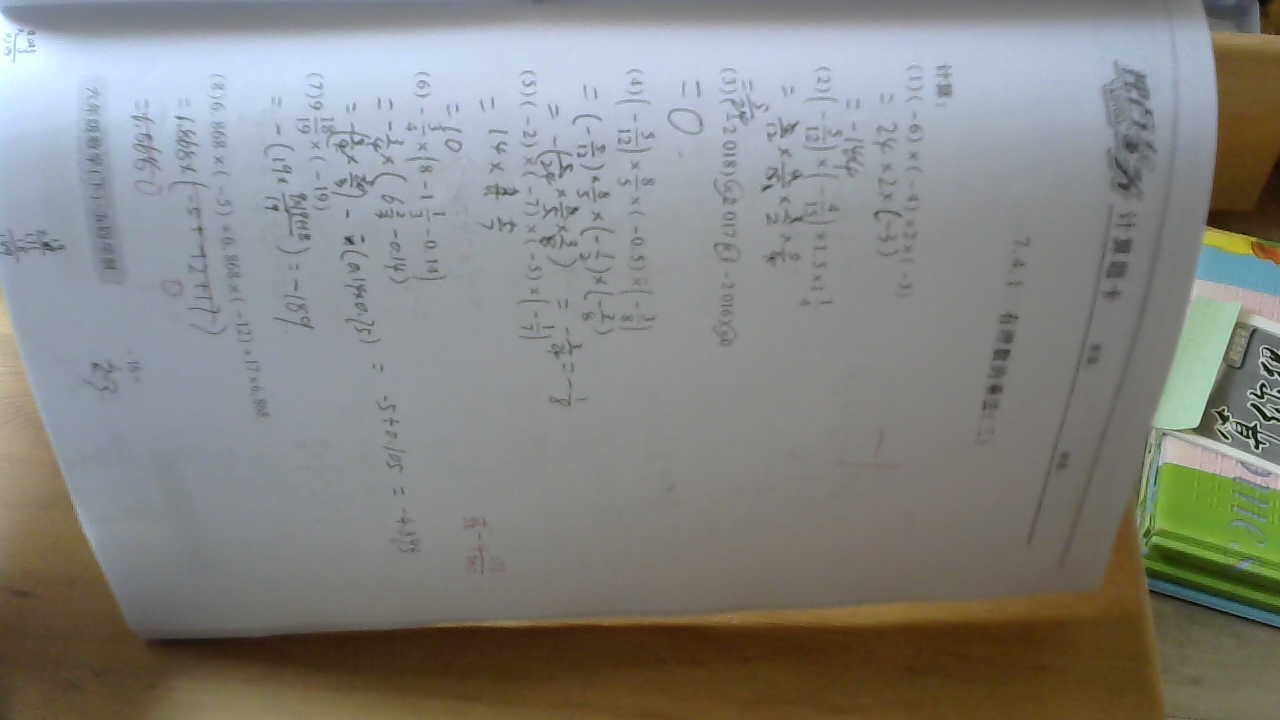 计算题卡
7.4.1 有理数的乘法(二)
计算:
(1)(-6)×(-4)×2×(-3)
= 24×2×(-3)
= -144
(2)(-5/12)×(-4/15)×1.5×1 1/4
= 5/12×4/15×3/2×5/4
=5/24
(3)(-2 018)×2 017×(-2 016)×0
=0
(4)(-5/12)×8/5×(-0.5)×(-3/8)
=(-5/12)×8/5×(-1/2)×(-3/8)
= -(5/24×8/5×3/8) = -3/24=-1/8
(5)(-2)×(-7)×(-5)×(-1/7)
= 14× 5/7
=10
(6)-3/4×(8-1 1/3-0.14)
=-3/4×(6 2/3-0.14)
(0.14×0.75) = -5+0.105 = -4.895
(7)9 18/19×(-19)
= -(19× 9×19+18/19)=-189
(8)6.868×(-5)+6.868×(-12)+17×6.868
=6.868×(-5+-12+17)
0
=6.868 0
-16-
23
六年级数学(下)·五四学制